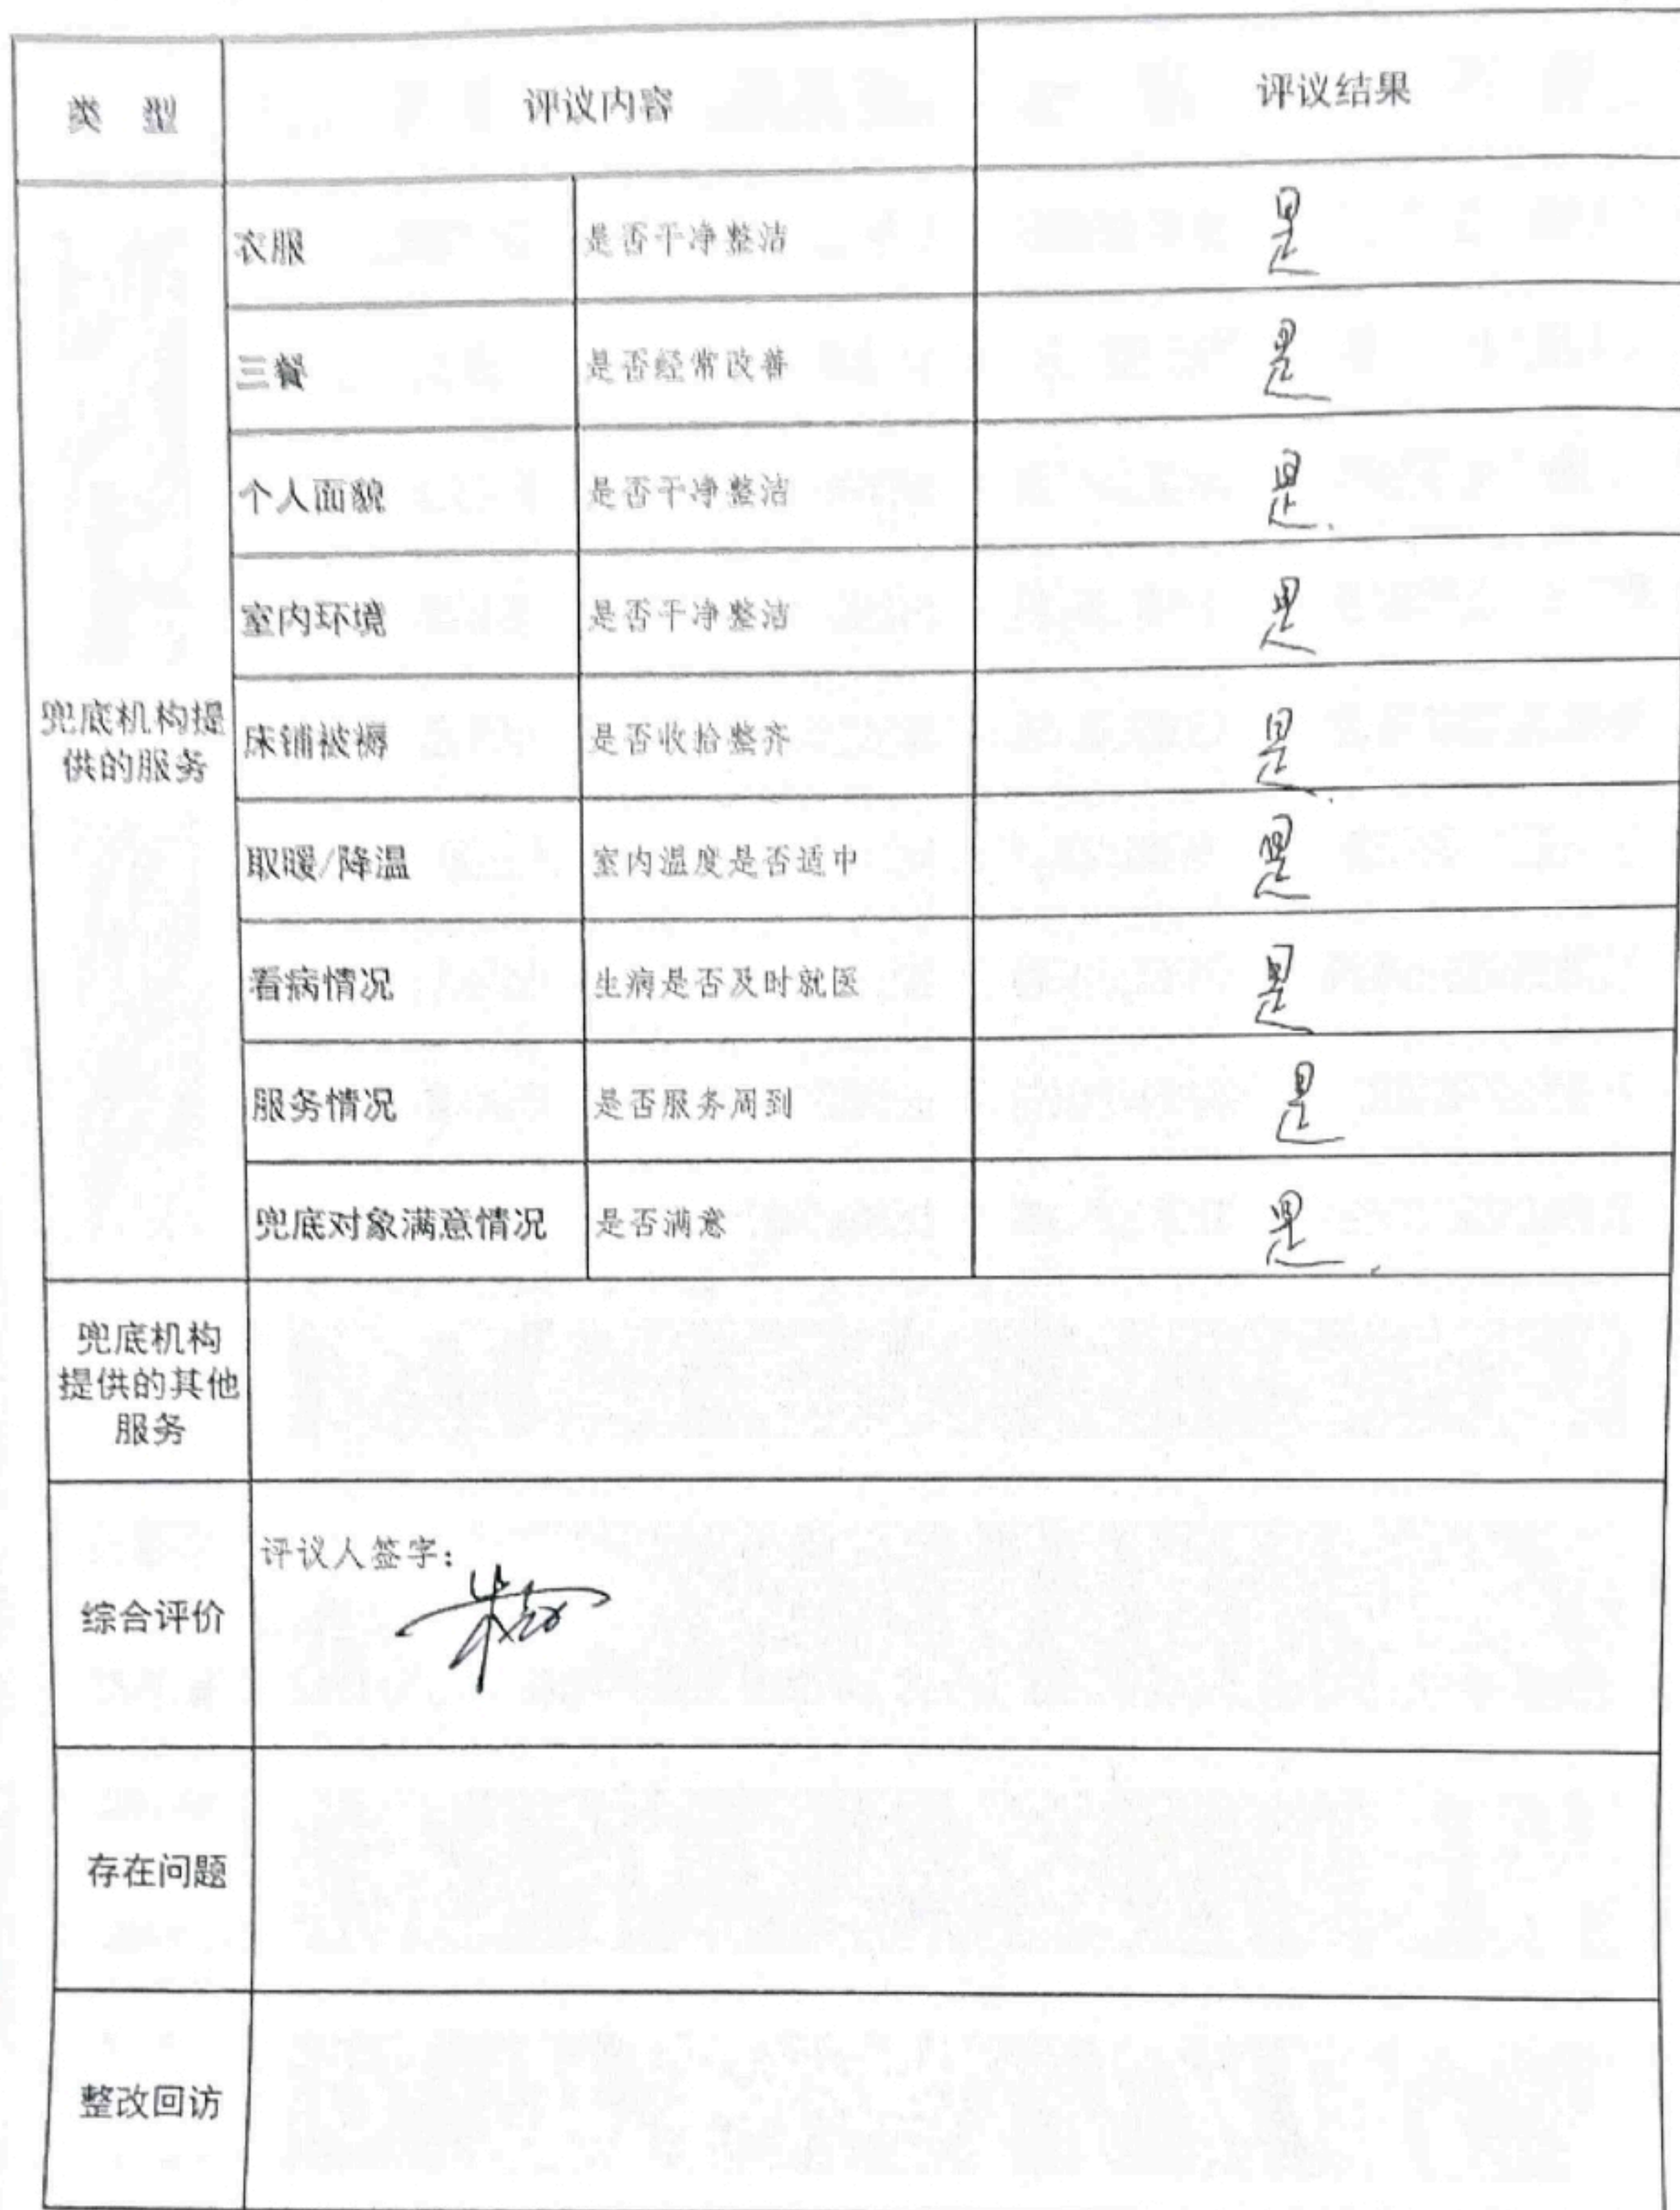 类 型 评议内容 评议结果
衣服 是否干净整洁 是
三餐 是否经常改善 是
个人面貌 是否干净整洁 是.
室内环境 是否干净整洁 是
兜底机构提
供的服务
床铺被褥 是否收拾整齐 是.
取暖/降温 室内温度是否适中 是
看病情况 生病是否及时就医 是
服务情况 是否服务周到 是
兜底对象满意情况 是否满意 是.
兜底机构
提供的其他
服务
综合评价
评议人签字：
存在问题
整改回访